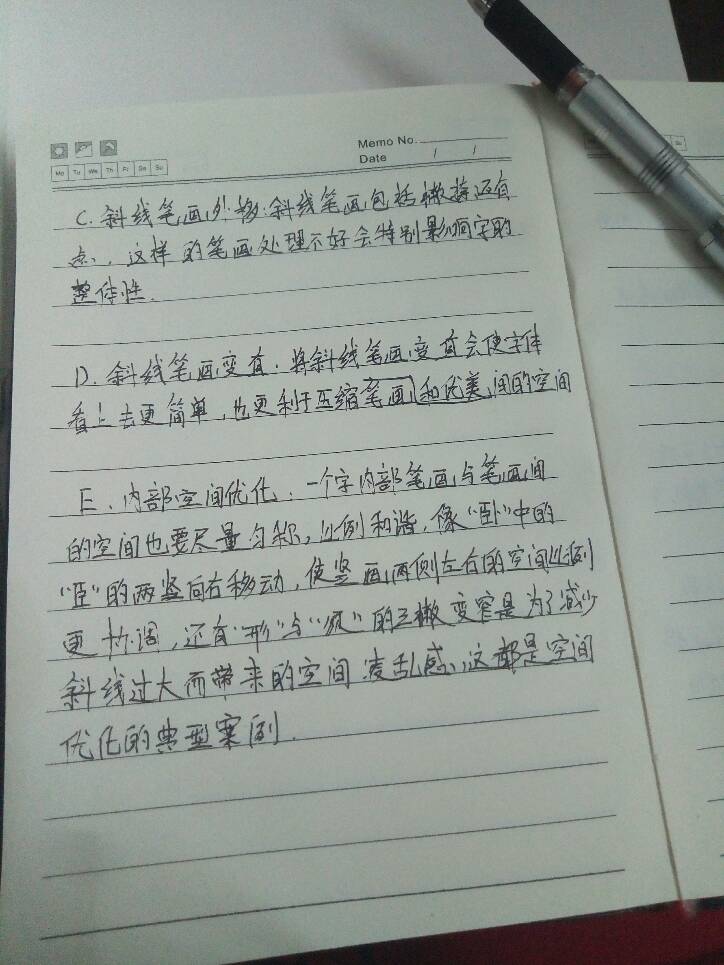 Memo No.
Date / /
Mo Tu We Th Fr Sa Su
C.斜线笔画外移:斜线笔画包括撇捺还有
点、这样的笔画处理不好会特别影响字的
整体性.
D.斜线笔画变直:将斜线笔画变直会使字体
看上去更简单,也更利于压缩笔画和优美间的空间
E、内部空间优化:一个字内部笔画与笔画间
的空间也要尽量匀称,比例和谐,像“卧”中的
“臣”的两竖向右移动,使竖画两侧左右的空间比例
更协调,还有“形”与“须”的三撇变窄是为了减少
斜线过大而带来的空间凌乱感、这都是空间
优化的典型案例.